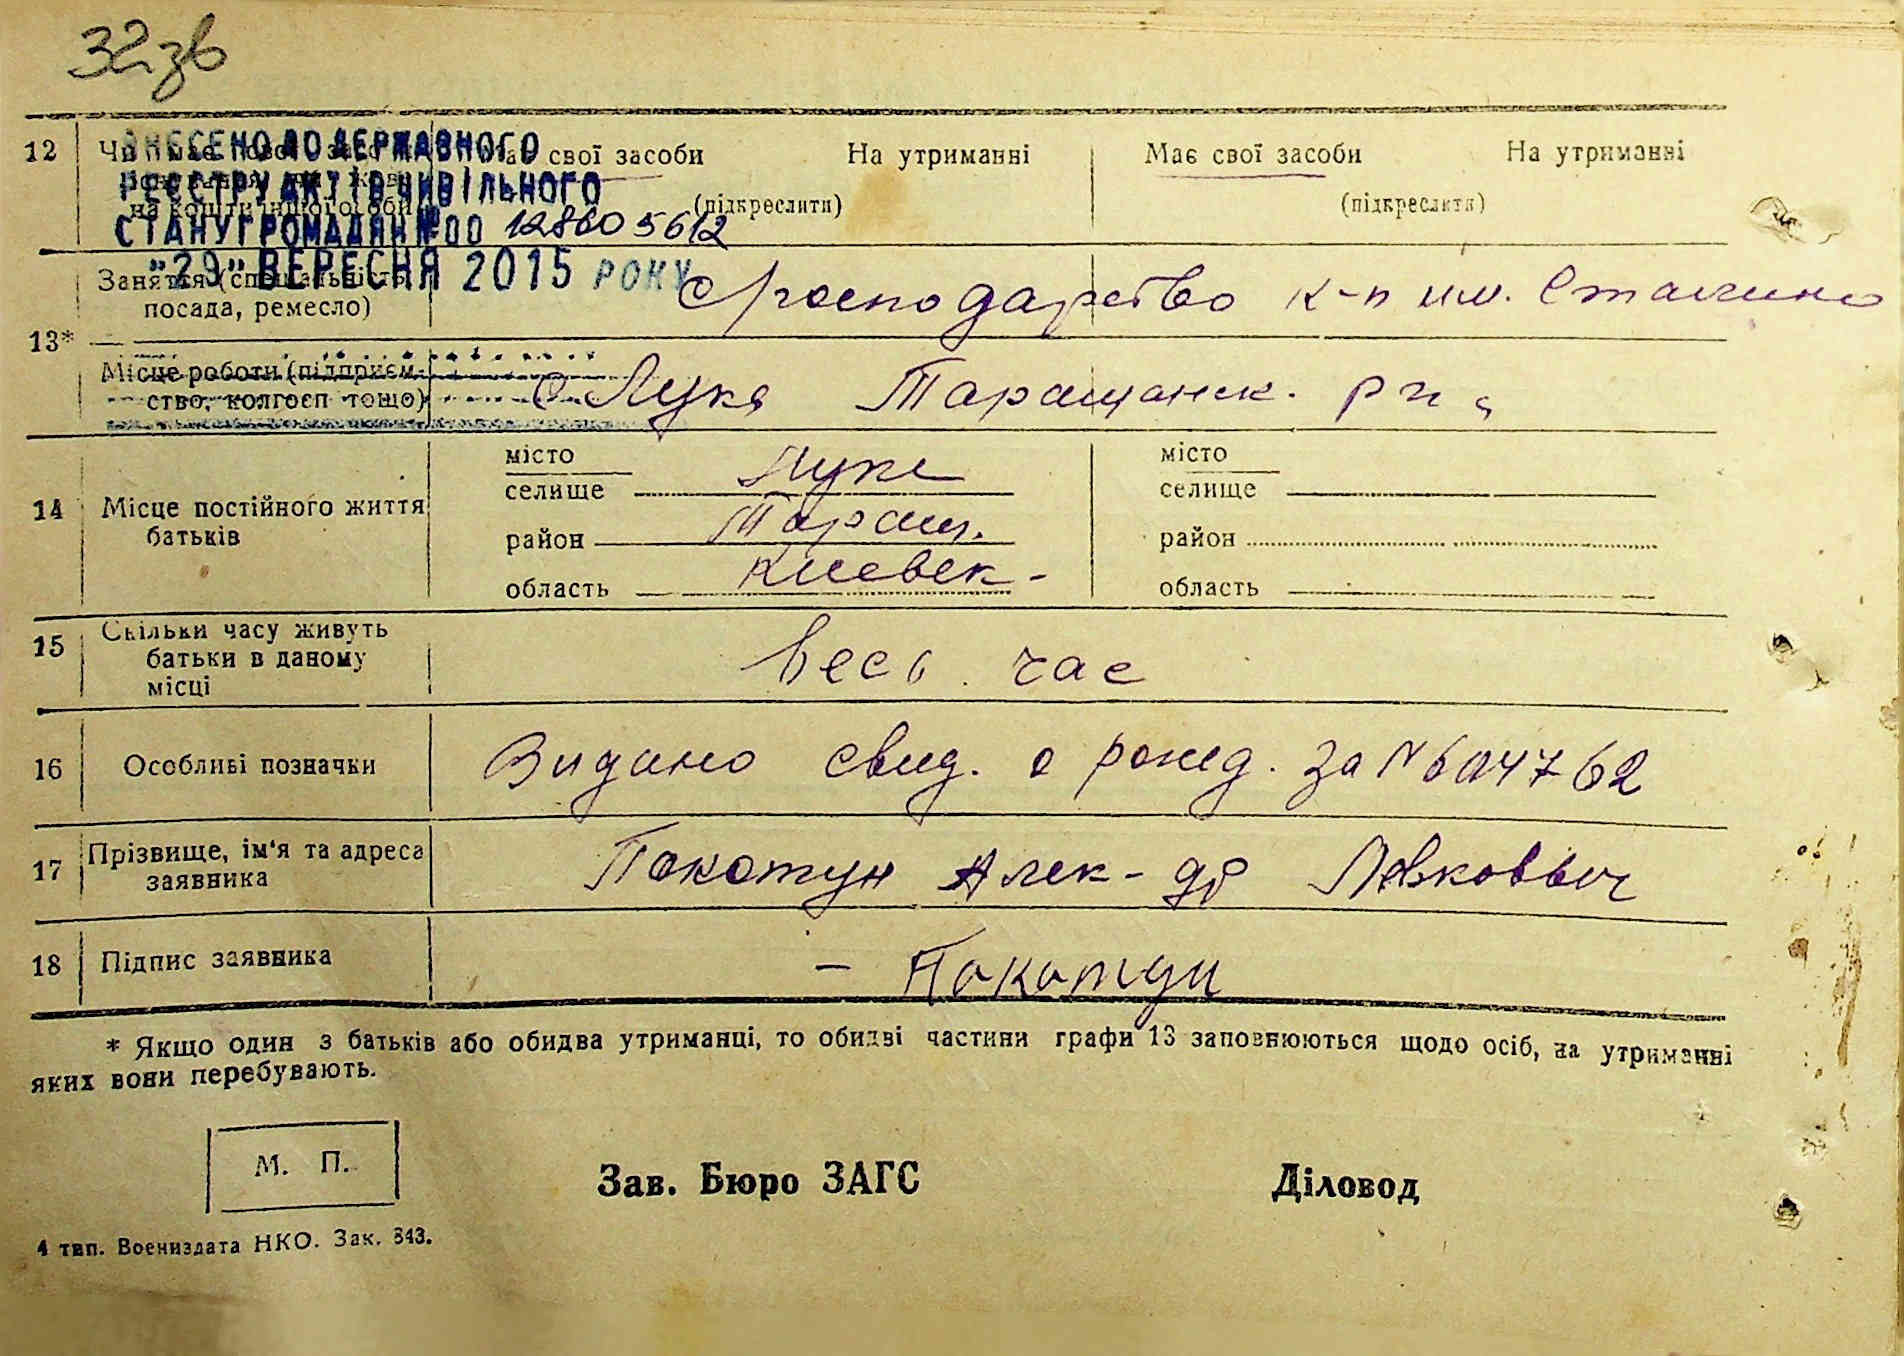 32зв
12
ВНЕСЕНО ДО ДЕРЖАВНОГО
РЕЄСТРУ АКТІВ ЦИВІЛЬНОГО
СТАНУ ГРОМАДЯН №00 12860 5612
"29" ВЕРЕСНЯ 2015 РОКУ
на кошти іншої особи
свої засоби На утриманні
(підкреслити)
Має свої засоби На утриманні
(підкреслити)
13*
Заняття (спеціальність
посада, ремесло)
господарство к-п им. Сталина
Місце роботи (підприєм-
ство, колгосп тощо)
с Лука Таращанск. р-н
14
Місце постійного життя
батьків
місто
селище Лука
район Таращ.
область Киевск-
місто
селище
район
область
15
Скільки часу живуть
батьки в даному
місці
Весь час
16
Особливі позначки
Видано свид. о рожд. за №
17
Прізвище, ім'я та адреса
заявника
Покотун Алек-др Левкович
18
Підпис заявника
- Покотун
* Якщо один з батьків або обидва утриманці, то обидві частини графи 13 заповнюються щодо осіб, на утриманні
яких вони перебувають.
М. П.
Зав. Бюро ЗАГС
Діловод
4 тип. Воениздата НКО. Зак. 843.